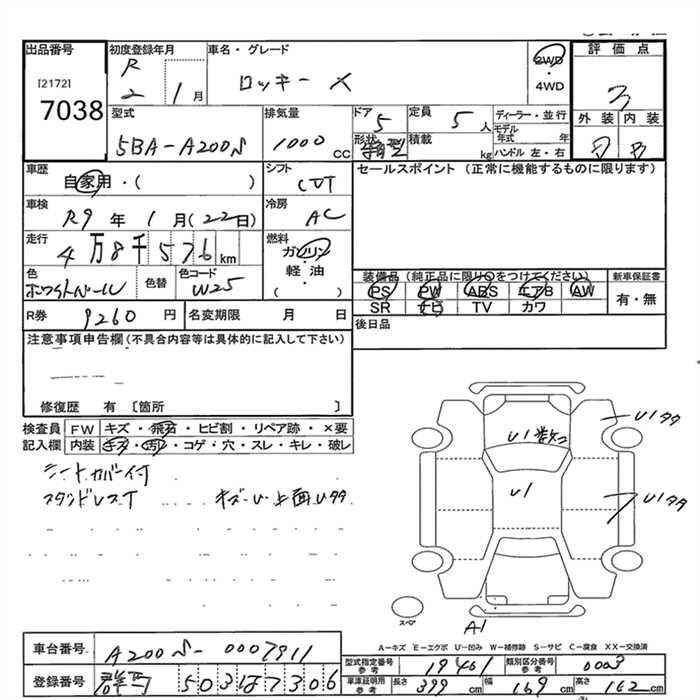 出品番号 初度登録年月 車名・グレード 評価点
[2172] R 2WD
7038 2 1月 ロッキー X ・4WD 3
型式 排気量 ドア 5 定員 5人 ディーラー・並行 外装 内装
5BA-A200S 1000 CC 形状 積載 kg モデル年式 年 ハンドル 左・右 B
車歴 シフト セールスポイント (正常に機能するものに限ります)
自家用・( ) CVT
車検 冷房
R9年 1月(22日) AC
走行 燃料
4万8千576km ガソリン
色 色替 色コード 軽油 装備品(純正品に限り○をつけてください) 新車保証書
ホワイトパール W25 ( ) PS PW ABS エアB AW 有・無
SR ナビ TV カワ
R券 9260円 名変期限 月 日 後日品
注意事項申告欄(不具合内容等は具体的に記入して下さい)
修復歴 有 〔箇所 〕
検査員 FW キズ・飛石・ヒビ割・リペア跡・×要
記入欄 内装 キズ・汚れ・コゲ・穴・スレ・キレ・破レ
シートカバー付
スタンドレスT キズ・U 上面Uタタ
U1タタ
U1数コ
U1
U1タタ
スペア
A1
A-キズ E-エクボ U-凹み W-補修跡 S-サビ C-腐食 XX-交換済
車台番号 A200S-0007911
型式指定番号 参考 19461 類別区分番号 参考 0003
登録番号 群馬 503 は 7306
車庫証明用 参考 長さ 399cm 幅 169cm 高さ 162cm